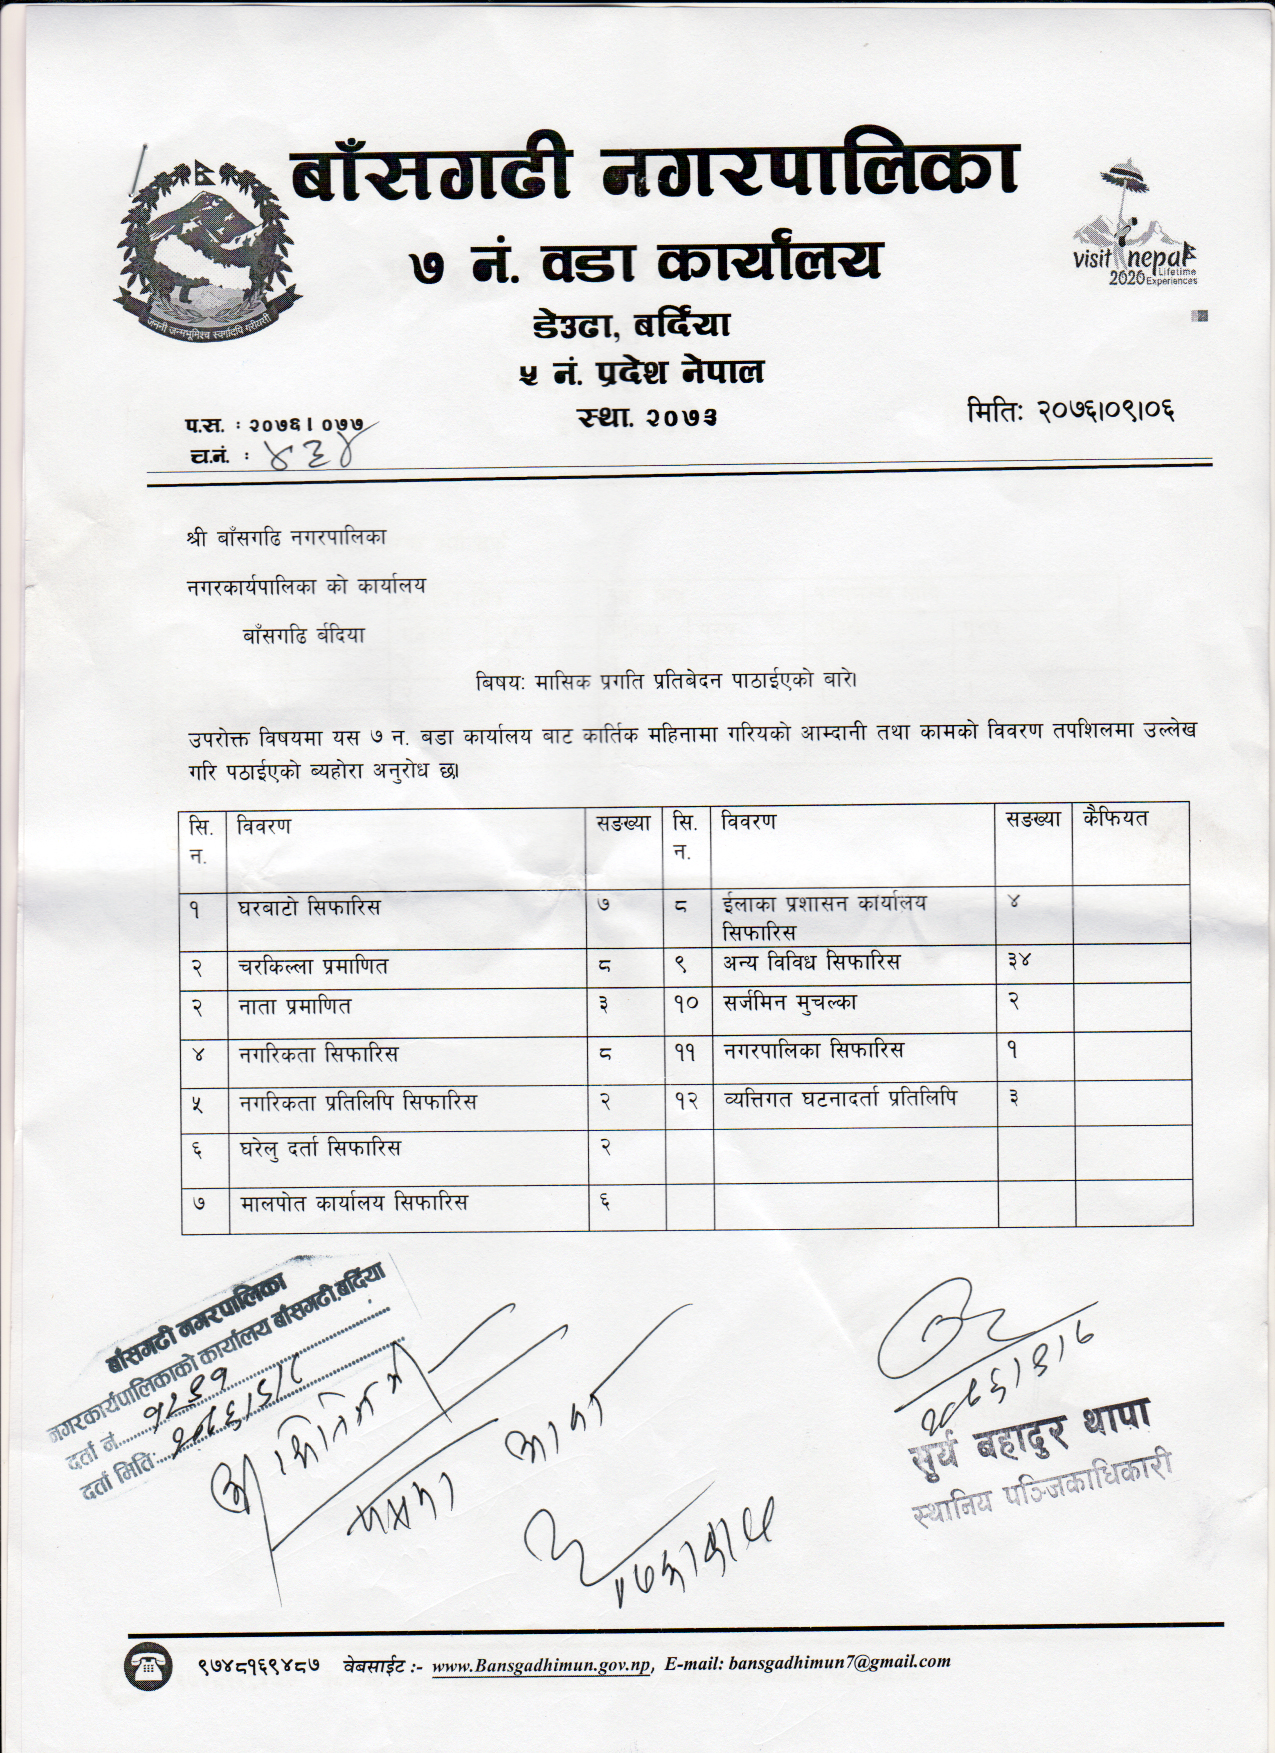 बाँसगढी नगरपालिका
७ नं. वडा कार्यालय
डेउढा, बर्दिया
५ नं. प्रदेश नेपाल
स्था. २०७३
जननी जन्मभूमिश्च स्वर्गादपि गरीयसी
visit nepal
2020 Lifetime Experiences
प.स. : २०७६।०७७
च.नं. : ४३४
मिति: २०७६।०९।०६
श्री बाँसगढि नगरपालिका
नगरकार्यपालिका को कार्यालय
बाँसगढि र्बदिया
बिषय: मासिक प्रगति प्रतिबेदन पाठाईएको बारे।
उपरोक्त विषयमा यस ७ न. बडा कार्यालय बाट कार्तिक महिनामा गरियको आम्दानी तथा कामको विवरण तपशिलमा उल्लेख
गरि पठाईएको ब्यहोरा अनुरोध छ।
सि. न. विवरण सङख्या सि. न. विवरण सङख्या कैफियत
१ घरबाटो सिफारिस ७ ८ ईलाका प्रशासन कार्यालय सिफारिस ४
२ चरकिल्ला प्रमाणित ८ ९ अन्य विविध सिफारिस ३४
२ नाता प्रमाणित ३ १० सर्जमिन मुचल्का २
४ नगरिकता सिफारिस ८ ११ नगरपालिका सिफारिस १
५ नगरिकता प्रतिलिपि सिफारिस २ १२ व्यत्तिगत घटनादर्ता प्रतिलिपि ३
६ घरेलु दर्ता सिफारिस २
७ मालपोत कार्यालय सिफारिस ६
बाँसगढी नगरपालिका
नगरकार्यपालिकाको कार्यालय बाँसगढी,बर्दिया
दर्ता नं.
दर्ता मिति:
सुर्य बहादुर थापा
स्थानिय पञ्जिकाधिकारी
९७४८१६९४८७ वेबसाईट :- www.Bansgadhimun.gov.np, E-mail: bansgadhimun7@gmail.com